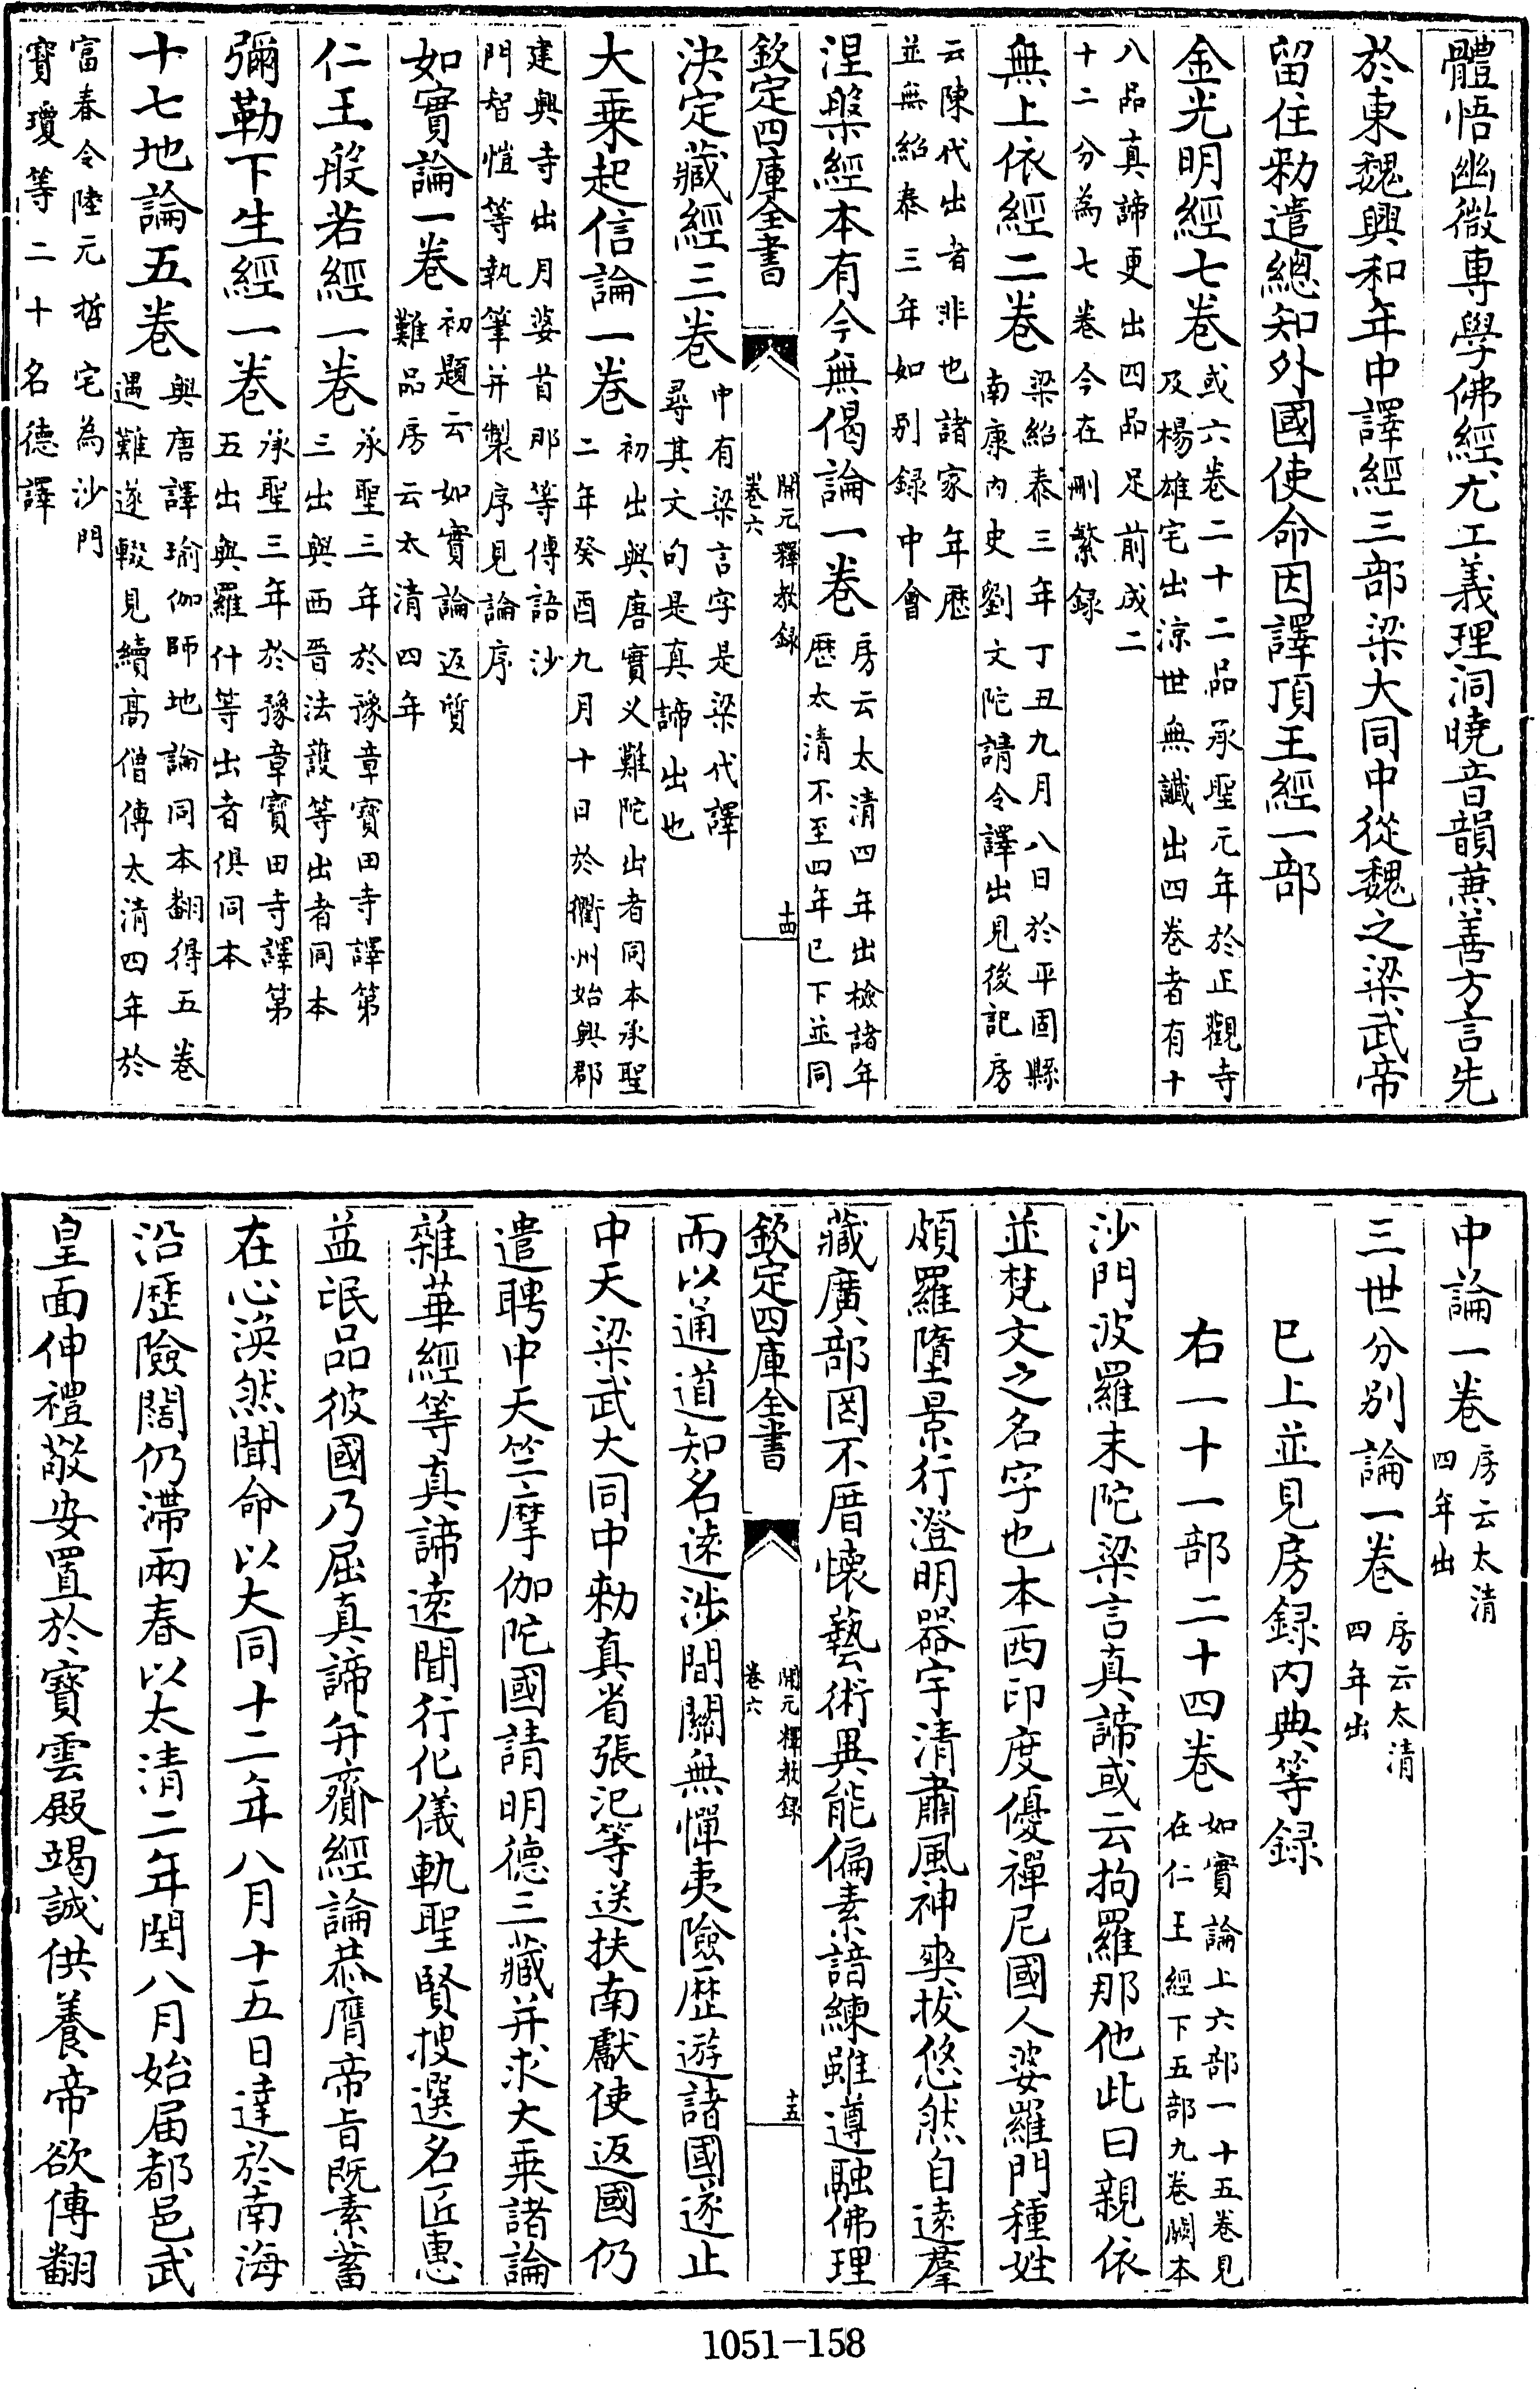 體悟幽微專學佛經尤工義理洞曉音韻蕪善方言先
於東魏興和年中譯經三部梁大同中從魏之梁武帝
留住勑遣總知外國使命因譯頂王經一部
金光明經七卷或六卷二十二品承聖元年於正觀寺
及楊雄宅出涼世無讖出四卷者有十
八品真諦更出四品足前成二
十二分為七卷今在刪繁録
無上依經二卷梁紹泰三年丁丑九月八日於平固縣
南康內史劉文陀請令譯出見後記房
云陳代出者非也諸家年歴
並無紹泰三年如別録中會
涅槃經本有今無偈論一卷房云太清四年出檢諸年
歴太清不至四年已下並同
欽定四庫全書
開元釋教録
卷六
十四
決定藏經三卷中有梁言字是梁代譯
尋其文句是真諦出也
大乗起信論一卷初出與唐實义難陀出者同本承聖
二年癸酉九月十日於衢州始興郡
建興寺出月婆首那等傳語沙
門智愷等執筆并製序見論序
如實論一卷初題云如實論返質
難品房云太清四年
仁王般若經一卷承聖三年於豫章寶田寺譯第
三出與西晉法護等出者同本
彌勒下生經一卷承聖三年於豫章寶田寺譯第
五出與羅什等出者俱同本
十七地論五卷與唐譯瑜伽師地論同本翻得五卷
遇難遂輟見續高僧傳太清四年於
富春令陸元哲宅為沙門
寶瓊等二十名德譯
中論一卷房云太清
四年出
三世分別論一卷房云太清
四年出
已上並見房録內典等録
右一十一部二十四卷如實論上六部一十五卷見
在仁王經下五部九卷闕本
沙門波羅末陀梁言真諦或云拘羅那他此曰親依
並梵文之名字也本西印度優禪尼國人婆羅門種姓
頗羅墮景行澄明器宇清肅風神爽拔悠然自遠羣
藏廣部罔不厝懷藝術異能偏素諳練雖遵融佛理
欽定四庫全書
開元釋教録
卷六
十五
而以通道知名遠涉間關無憚夷險歴遊諸國遂止
中天梁武大同中勑真省張氾等送扶南獻使返國仍
遣聘中天竺摩伽陀國請明德三藏并求大乗諸論
雜華經等真諦遠聞行化儀軌聖賢搜選名匠惠
益氓品彼國乃屈真諦并齎經論恭膺帝旨既素蓄
在心渙然聞命以大同十二年八月十五日達於南海
沿歴險闊仍滯兩春以太清二年閏八月始届都邑武
皇面伸禮敬安置於寶雲殿竭誠供養帝欲傳翻
1051-158